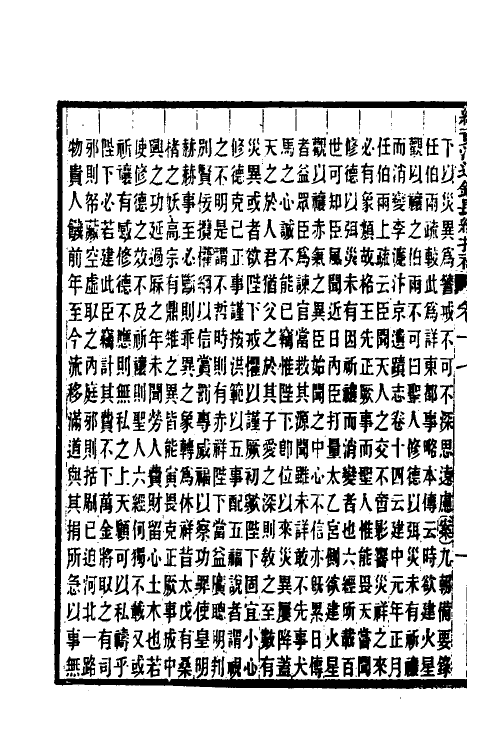 下以災異爲警戒不可不深思遠慮(案)九朝備要錄
任伯雨疏較此爲詳東都事略本傳云時欲建火星
觀以禳之伯雨不可曰聖人修德以弭災未有祈禳
而消變李濂汴京遺蹟志卷十四云建中元年正月
任伯雨上疏云臣聞天人之交不啻影響災祥之來
必有象類故格王先正厥事而聖人惟能畏天當聞
修德以弭災未有因祈禳而消變者也六經所載百
世可知臣風聞近日內臣打量太乙宮側欲建火星
觀以禳赤氣之異臣始聞之中心不信亦旣累日傳
者益眾臣爲諫官當救其源聞雖未詳敢不先事犬
馬之心誠不能已竊惟陛下卽位以來災異屢降蓋
天之於人君猶父之於其子愛之深則教之至數有
災異或者欲陛下戒懼以謹厥初歟陛下固宜小心
修德克已正事謹按洪範以五事配五福說者謂視
之不明是謂不哲時則有赤祥陛下當益廣聰明判
別賢佞攬權綱以信賞罰專威福以察功罪使皇明
赫赫事至必斷則乖異之象轉爲休祥昔太戊有桑
楮之妖高宗有鼎雉之異皆能寅畏克正厥事成中
興之功延過厤之年不聞勞人費財留心土木也若
使修德之效不及祈禳則聖人六經何獨不載又或
祈禳有感修德不應則無私之上天顧可以私禱乎
陛下必若建此臣竊計其費不下萬金將取之有司
邪則帑藏空虛取之內庭邪則括刷已迫河北一路
物貴人饑前年至今流移滿道與其捐所急以事無